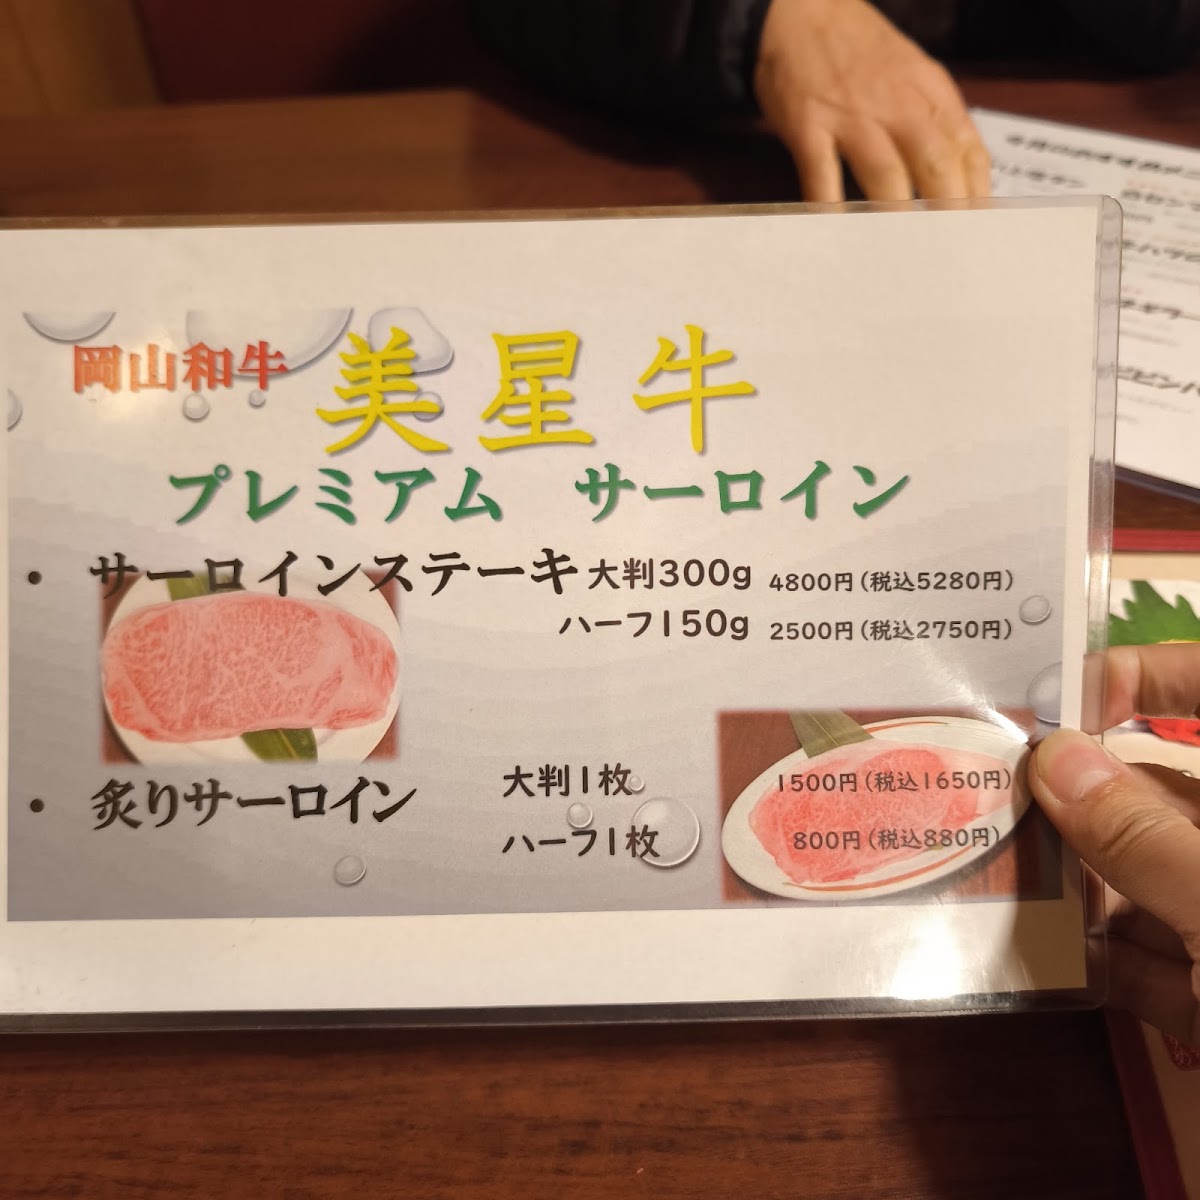 岡山和牛 美星牛
プレミアム サーロイン
・ サーロインステーキ 大判300g 4800円(税込5280円)
ハーフ150g 2500円(税込2750円)
・ 炙りサーロイン 大判1枚 1500円(税込1650円)
ハーフ1枚 800円(税込880円)